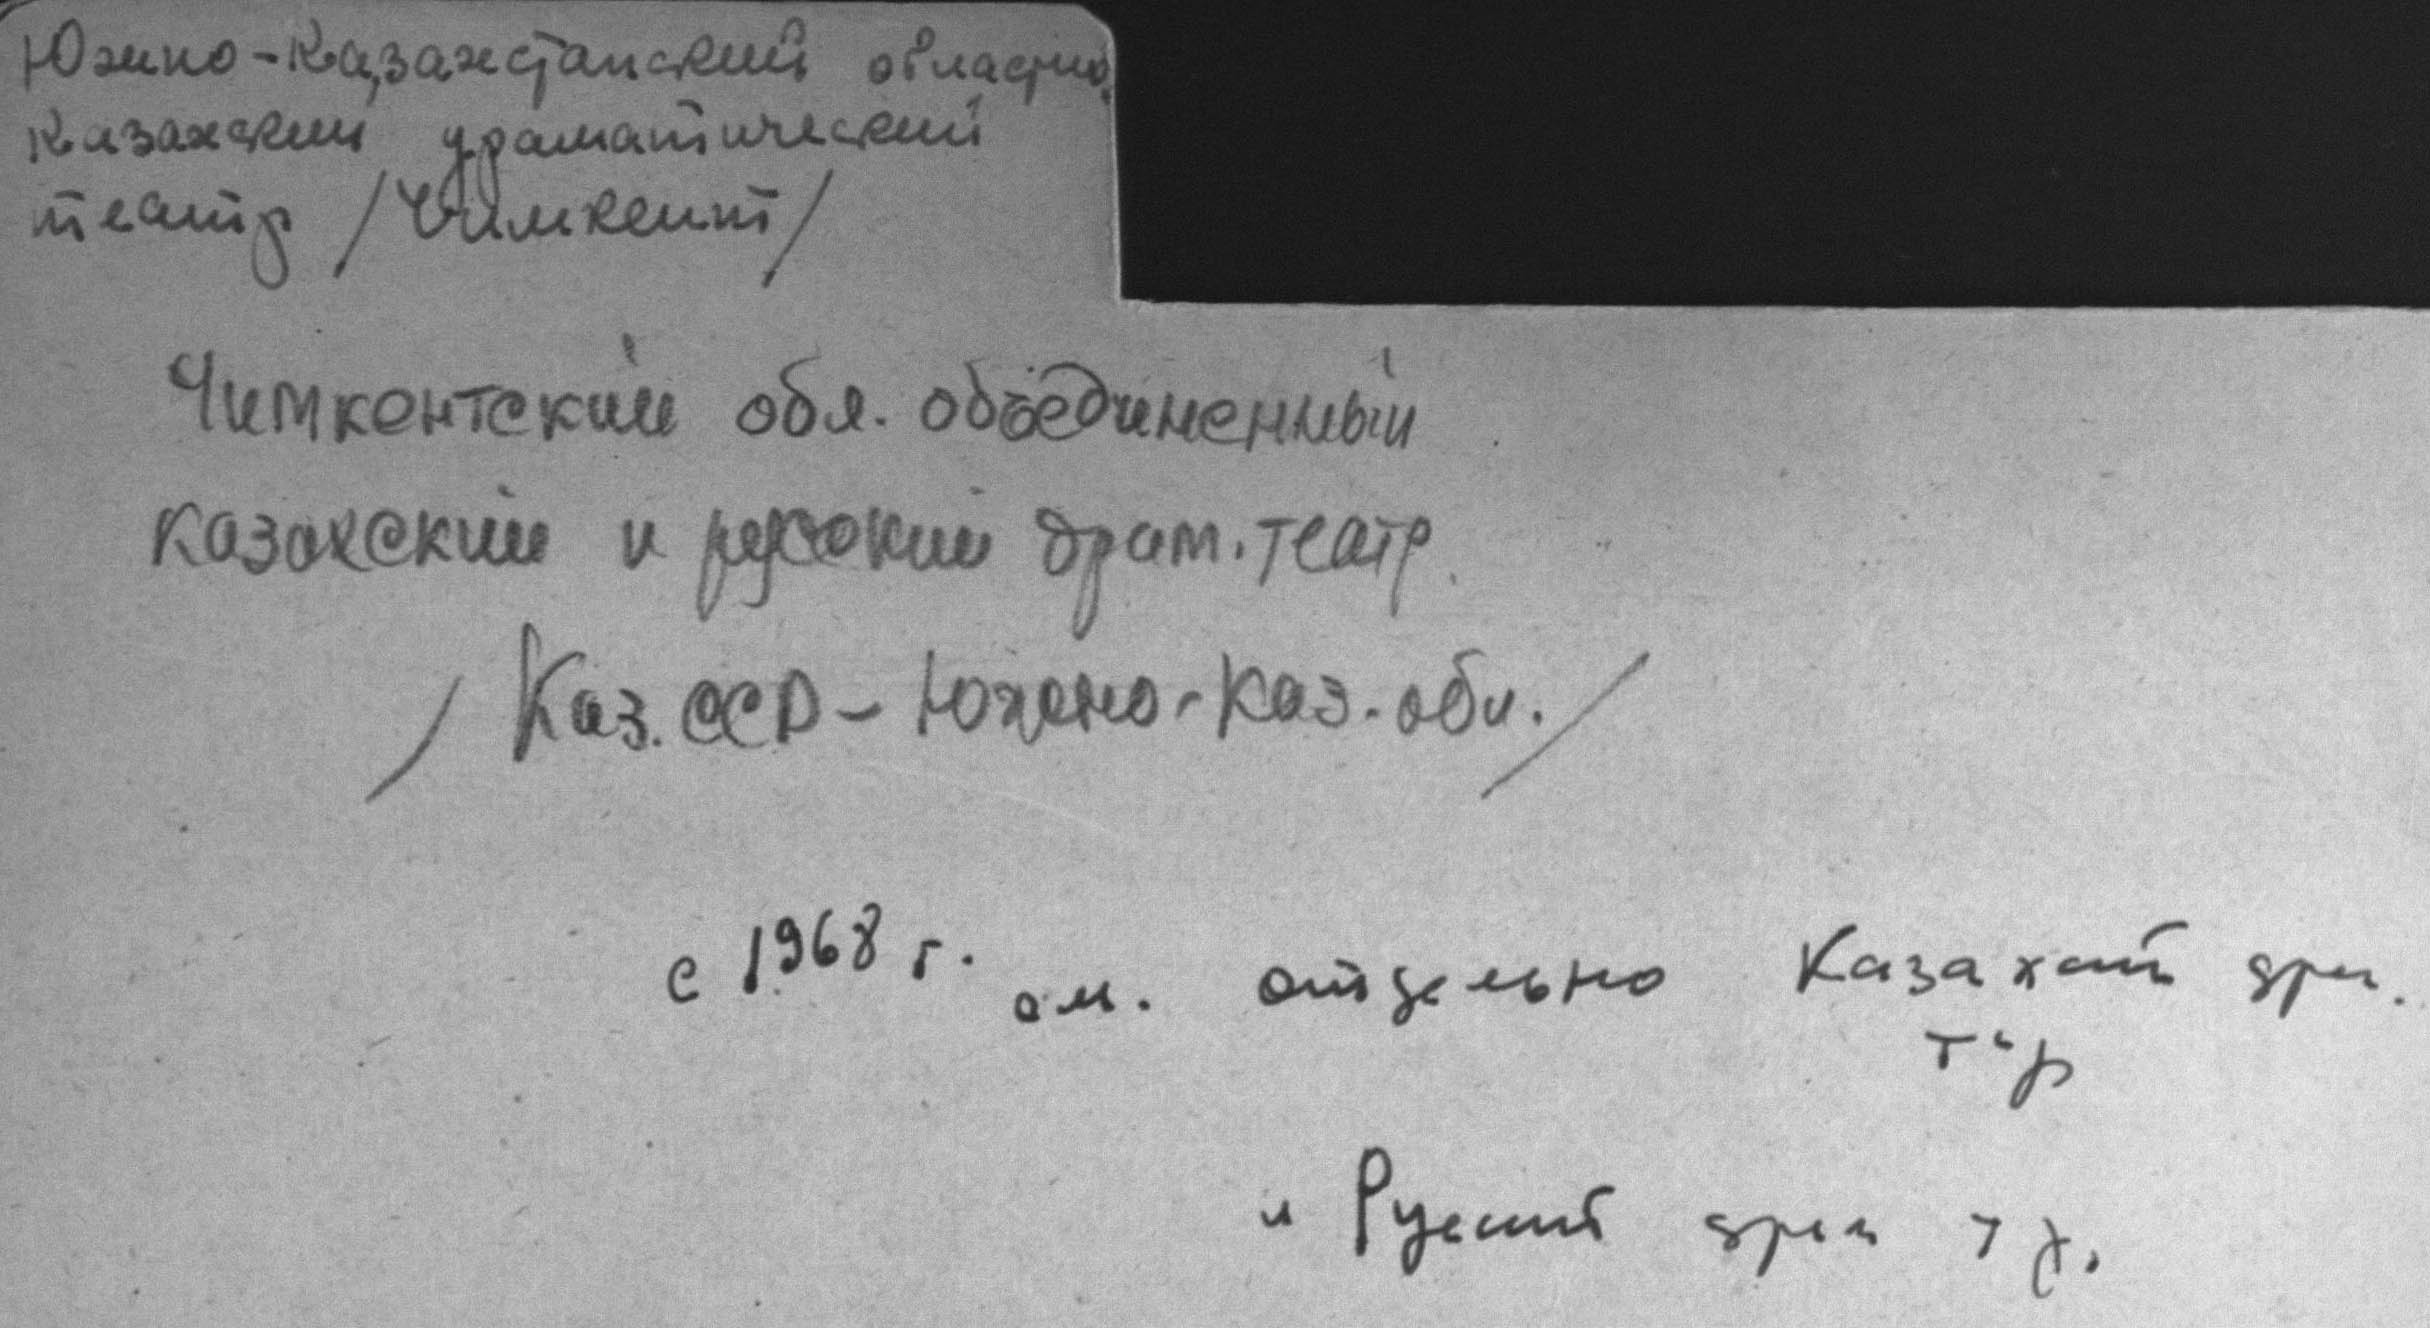 Южно-Казахстанский областно.
казахский драматический
театр /Чимкент/
Чимкентский обл. объединенный
казахский и русский драм. театр.
/Каз. ССР - Южно-Каз. обл./
с 1968 г. см. отдельно Казахский др.
т-р
и Русский драм т-р.